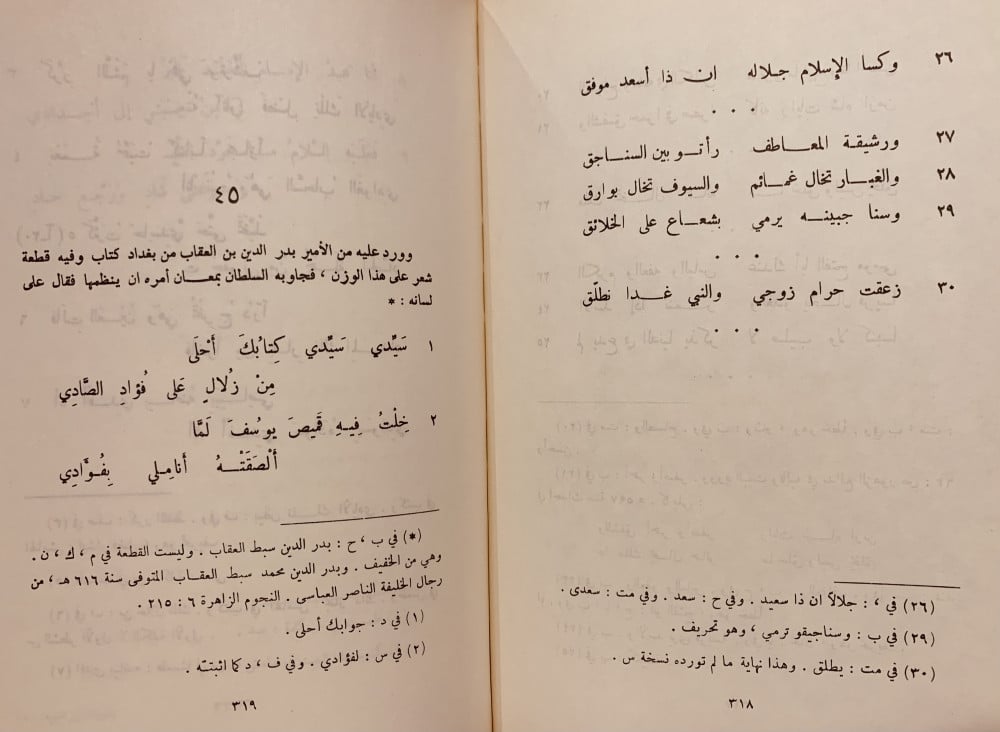 ٢٦ وكسا الإسلام جلاله ان ذا أسعد موفق
. . .
٢٧ ورشيقة المعاطف رأتو بين السناجق
٢٨ والغبار تخال غمائم والسيوف تخال بوارق
٢٩ وسنا جبينه يرمي بشعاع على الخلائق
. . .
٣٠ زعقت حرام زوجي والنبي غدا نطلّق
. . .
(٢٦) في ، : جلالاً ان ذا سعيد . وفي ح : سعد . وفي مت : سعدى .
(٢٩) في ب : وسناجيقو ترمي ، وهو تحريف .
(٣٠) في مت : يطلق . وهذا نهاية ما لم تورده نسخة س .
٣١٨
٤٥
وورد عليه من الأمير بدر الدين بن العقاب من بغداد كتاب وفيه قطعة
شعر على هذا الوزن ، فجاوبه السلطان بمعان أمره ان ينظمها فقال على
لسانه : *
١ سَيِّدي سَيِّدي كِتابُكَ أَحْلَى
مِنْ زُلالٍ عَلى فُؤادِ الصَّادِي
٢ خِلْتُ فِيهِ قَمِيصَ يوسُفَ لَمَّا
أَلْصَقَتْهُ أنامِلي بِفُؤَادِي
(*) في ب ، ح : بدر الدين سبط العقاب . وليست القطعة في م ، ك ، ن .
وهي من الخفيف . وبدر الدين محمد سبط العقاب المتوفى سنة ٦١٦ هـ ، من
رجال الخليفة الناصر العباسي . النجوم الزاهرة ٦ : ٢١٥ .
(١) في د : جوابك أحلى .
(٢) في س : لفؤادي . وفي ف ، د كما اثبتته .
٣١٩